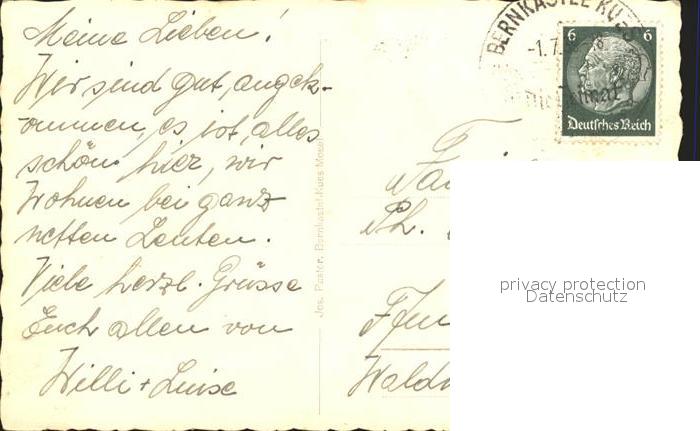 Meine Lieben!
Wir sind gut angek-
ommen, es ist alles
schön hier, wir
Wohnen bei ganz
netten Leuten.
Viele herzl. Grüsse
Euch allen von
Willi + Luise
Jos. Paster, Bernkastel-Kues Mosel
BERNKASTEL KUES
-1.7.
6 6
Deutsches Reich
Ph.
privacy protection
Datenschutz